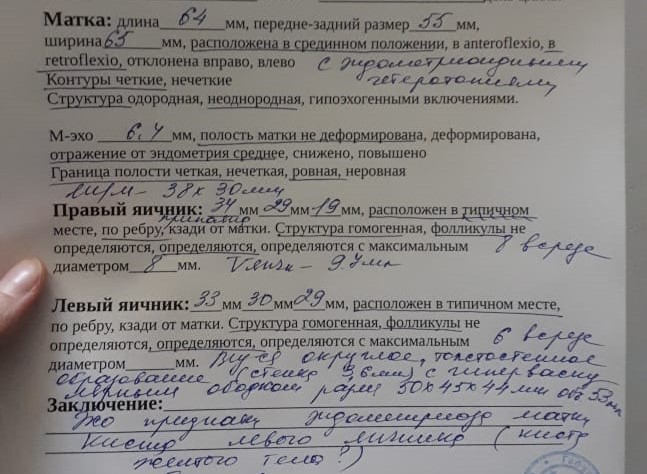 Матка: длина 64 мм, передне-задний размер 55 мм,
ширина 65 мм, расположена в срединном положении, в anteroflexio, в
retroflexio, отклонена вправо, влево с эндометриоидными
Контуры четкие, нечеткие гетеротопиями
Структура одородная, неоднородная, гипоэхогенными включениями.
М-эхо 6,4 мм, полость матки не деформирована, деформирована,
отражение от эндометрия среднее, снижено, повышено
Граница полости четкая, нечеткая, ровная, неровная
38 х 30 мм
Правый яичник: 34 мм 29 мм 19 мм, расположен в типичном
месте, по ребру, кзади от матки. Структура гомогенная, фолликулы не
определяются, определяются, определяются с максимальным 8 в срезе
диаметром 8 мм. V яичн - 9.7 мл
Левый яичник: 33 мм 30 мм 29 мм, расположен в типичном месте,
по ребру, кзади от матки. Структура гомогенная, фолликулы не
определяются, определяются, определяются с максимальным 6 в срезе
диаметром мм. округлое, толстостенное
образование (стенка 3,6мм) с гиперваску
лярным ободком разм 50х45х44 мм об 53 мл
Заключение:
Эхо признаки эндометриоза матки
Киста левого яичника (киста
желтого тела?)